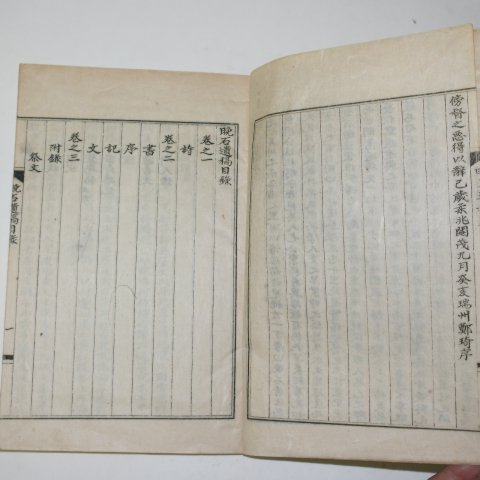 傍督之懇得以辭已歲柔兆閹茂九月癸亥瑞州鄭琦序
晚石遺稿目錄
卷之一
詩
卷之二
書
序
記
文
卷之三
附錄
祭文
晚石遺稿目錄
一